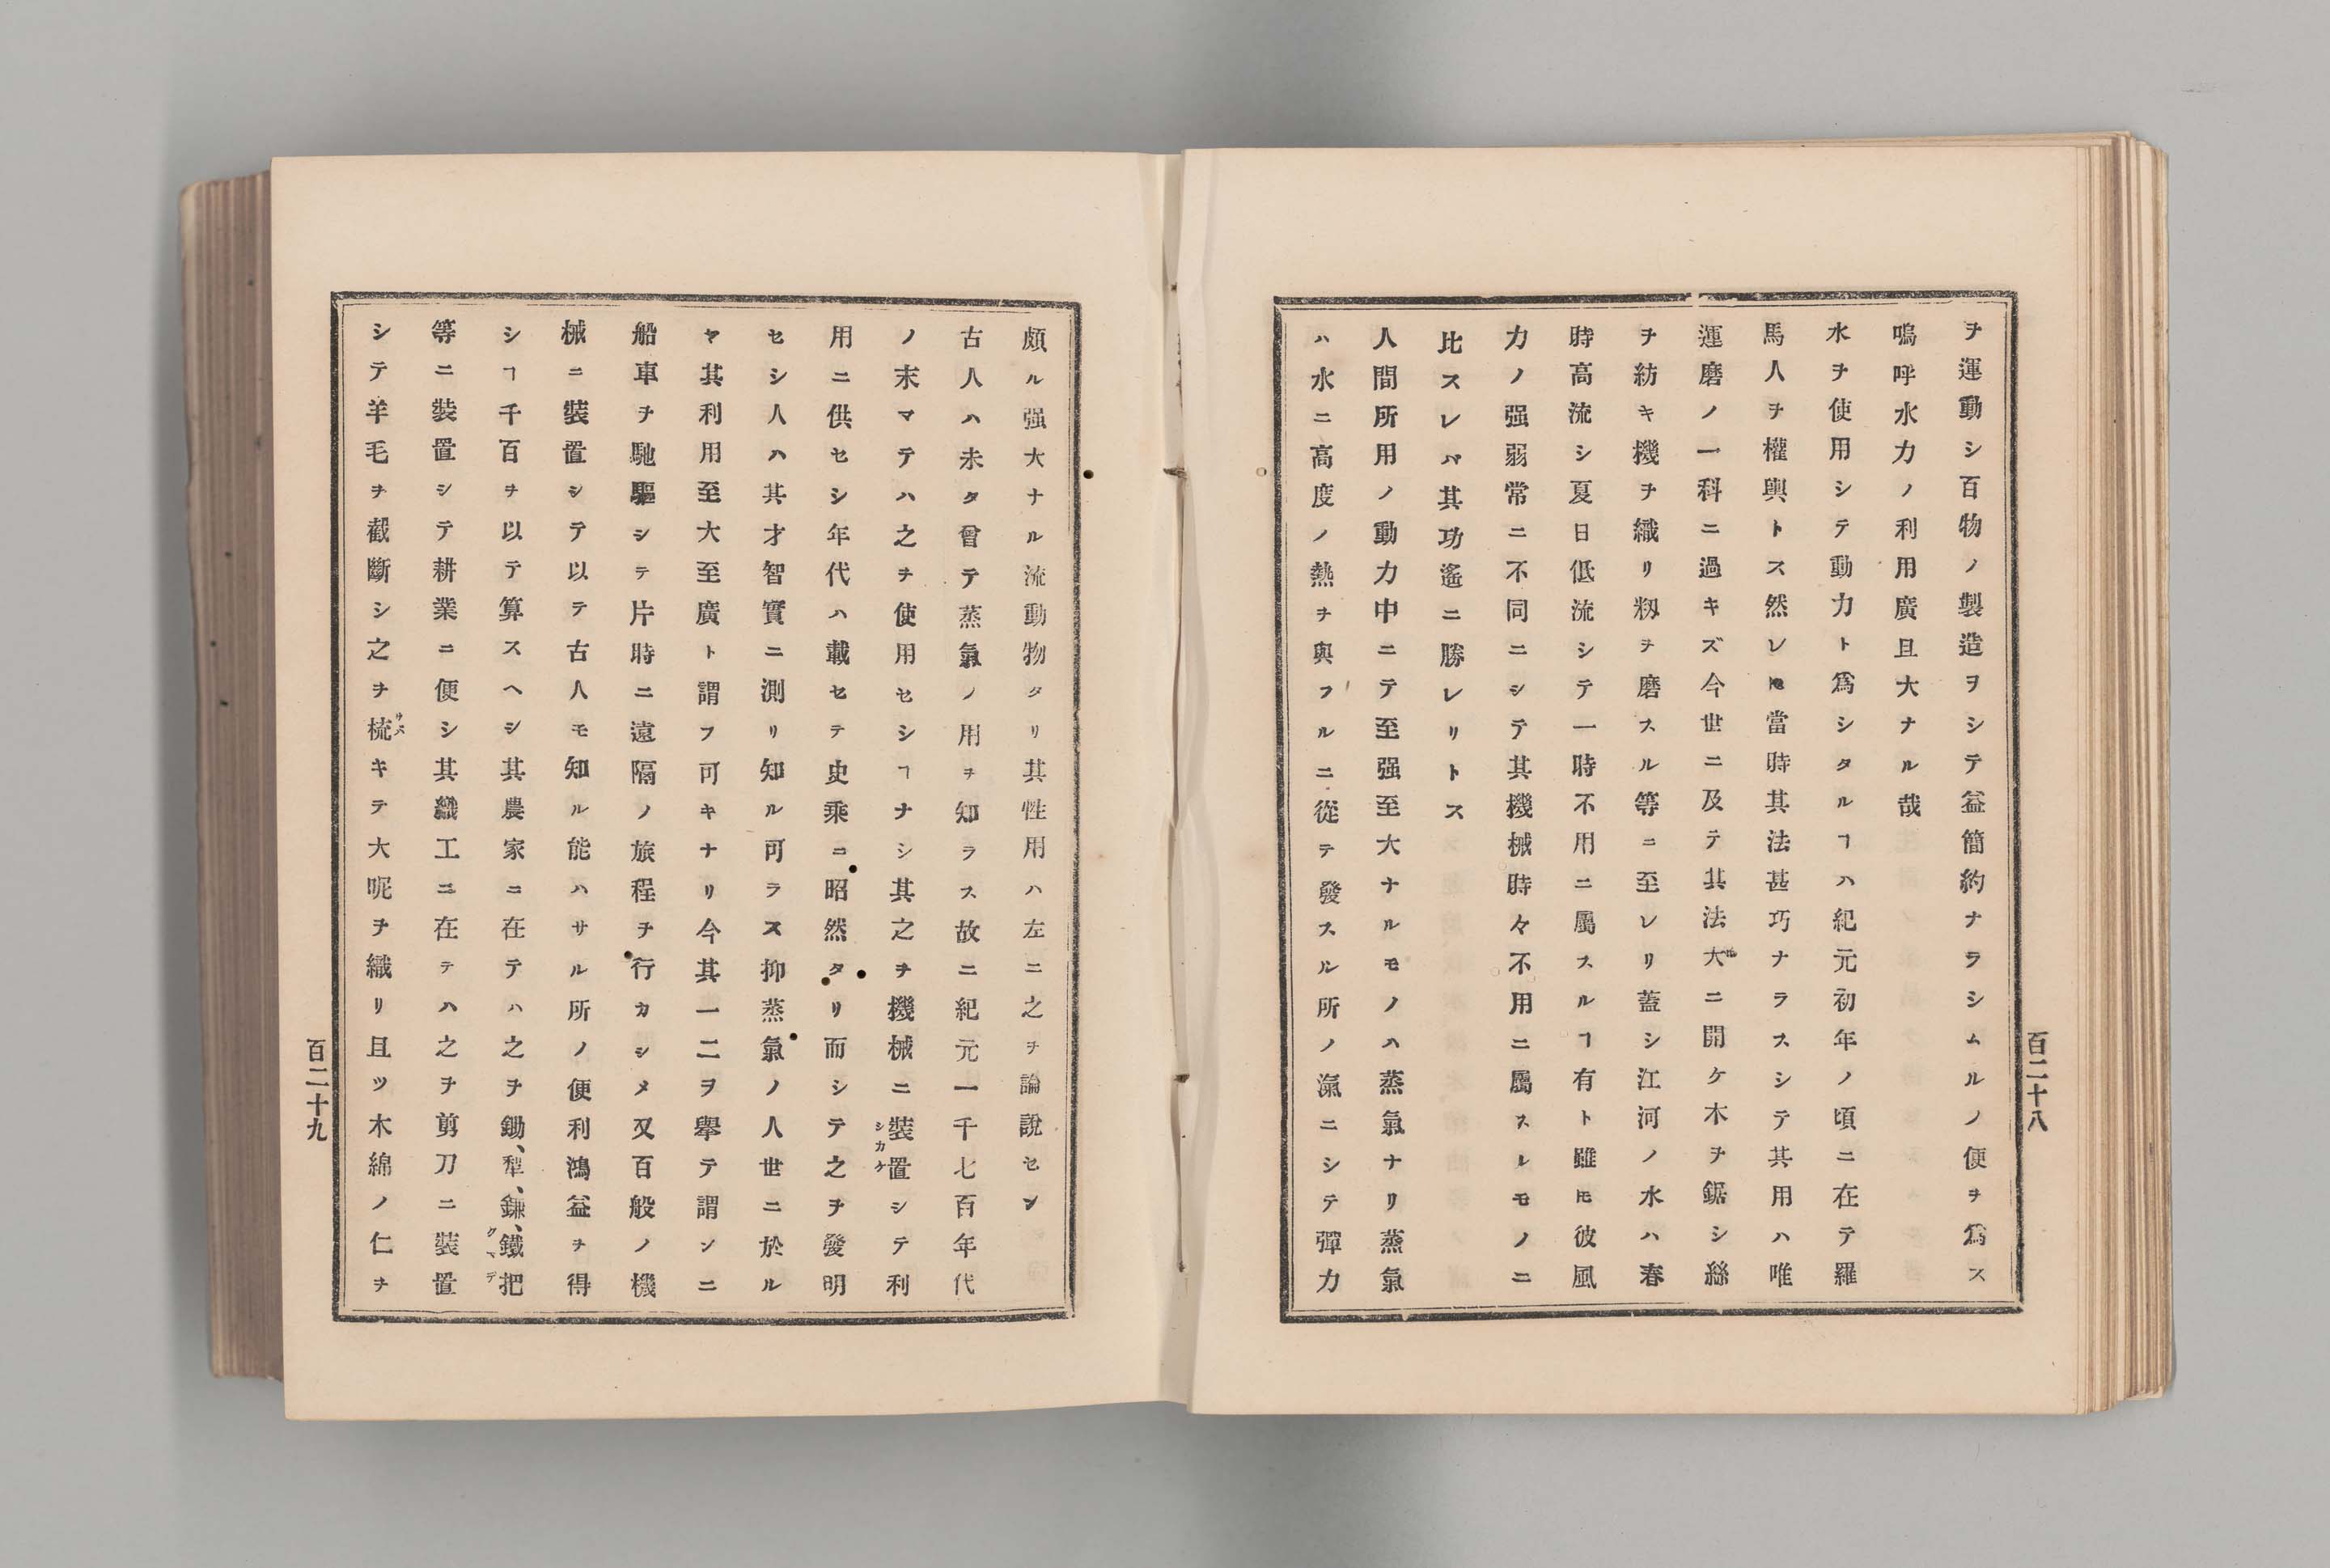 ヲ運動シ百物ノ製造ヲシテ益簡約ナラシムルノ便ヲ爲ス
嗚呼水力ノ利用廣且大ナル哉
水ヲ使用シテ動力ト爲シタルヿハ紀元初年ノ頃ニ在テ羅
馬人ヲ權輿トス然レ𪜈當時其法甚巧ナラスシテ其用ハ唯
運磨ノ一科ニ過キズ今世ニ及テ其法大ニ開ケ木ヲ鋸シ絲
ヲ紡キ機ヲ織リ籾ヲ磨スル等ニ至レリ蓋シ江河ノ水ハ春
時高流シ夏日低流シテ一時不用ニ屬スルヿ有ト雖𪜈彼風
力ノ强弱常ニ不同ニシテ其機械時々不用ニ屬スレモノニ
比スレハ其功遙ニ勝レリトス
人間所用ノ動力中ニテ至强至大ナルモノハ蒸氣ナリ蒸氣
ハ水ニ高度ノ熱ヲ與フルニ從テ發スル所ノ瀛ニシテ彈力
百二十八
頗ル强大ナル流動物タリ其性用ハ左ニ之ヲ論說セン
古人ハ未タ曾テ蒸氣ノ用ヲ知ラス故ニ紀元一千七百年代
ノ末マテハ之ヲ使用セシヿナシ其之ヲ機械ニ裝置シカケシテ利
用ニ供セシ年代ハ載セテ史乘ニ昭然タリ而シテ之ヲ發明
セシ人ハ其才智實ニ測リ知ル可ラス抑蒸氣ノ人世ニ於ル
ヤ其利用至大至廣ト謂フ可キナリ今其一二ヲ擧テ謂ンニ
船車ヲ馳驅シテ片時ニ遠隔ノ旅程ヲ行カシメ又百般ノ機
械ニ裝置シテ以テ古人モ知ル能ハサル所ノ便利鴻益ヲ得
シヿ千百ヲ以テ算スヘシ其農家ニ在テハ之ヲ鋤、犂、鎌、鐵把クマデ
等ニ裝置シテ耕業ニ便シ其織工ニ在テハ之ヲ剪刀ニ裝置
シテ羊毛ヲ截斷シ之ヲ梳キテ大呢ヲ織リ且ツ木綿ノ仁ヲ
百二十九